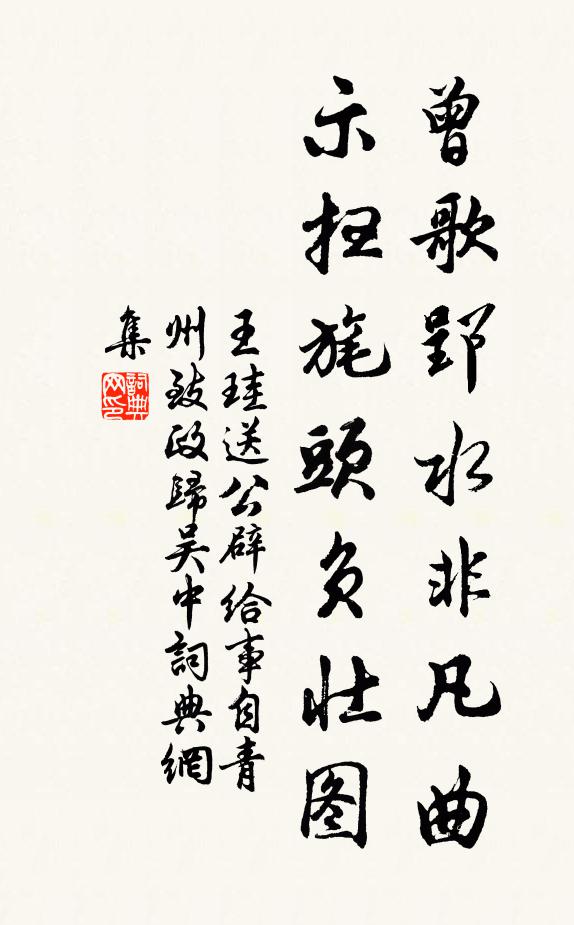 曾歌郢水非凡曲
亦擁旄頭负壯图
王珪送公辟给事自青
州致政歸吴中詞典網
集
詞典
网印